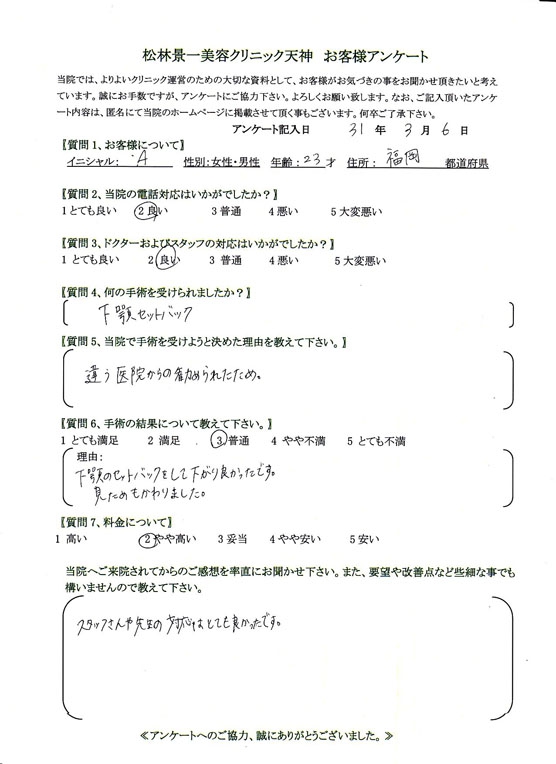 松林景一美容クリニック天神　お客様アンケート
当院では、よりよいクリニック運営のための大切な資料として、お客様がお気づきの事をお聞かせ頂きたいと考え
ています。誠にお手数ですが、アンケートにご協力下さい。よろしくお願い致します。なお、ご記入頂いたアンケ
ート内容は、匿名にて当院のホームページに掲載させて頂く事もございます。何卒ご了承下さい。
アンケート記入日　31 年 3 月 6 日
〖質問 1、お客様について〗
イニシャル： A　性別：女性・男性　年齢：23才　住所：福岡　都道府県
〖質問 2、当院の電話対応はいかがでしたか？〗
1 とても良い　2 良い　3 普通　4 悪い　5 大変悪い
〖質問 3、ドクターおよびスタッフの対応はいかがでしたか？〗
1 とても良い　2 良い　3 普通　4 悪い　5 大変悪い
〖質問 4、何の手術を受けられましたか？〗
下顎セットバック
〖質問 5、当院で手術を受けようと決めた理由を教えて下さい。〗
違う医院からの勧められたため。
〖質問 6、手術の結果について教えて下さい。〗
1 とても満足　2 満足　3 普通　4 やや不満　5 とても不満
理由：
下顎のセットバックをして下がり良かったです。
見ためもかわりました。
〖質問 7、料金について〗
1 高い　2 やや高い　3 妥当　4 やや安い　5 安い
当院へご来院されてからのご感想を率直にお聞かせ下さい。また、要望や改善点など些細な事でも
構いませんので教えて下さい。
スタッフさんや先生の対応はとても良かったです。
≪アンケートへのご協力、誠にありがとうございました。≫